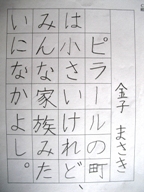 金子 まさき
ピラールの町
は小さいけれど、
みんな家族みた
いになかよし。